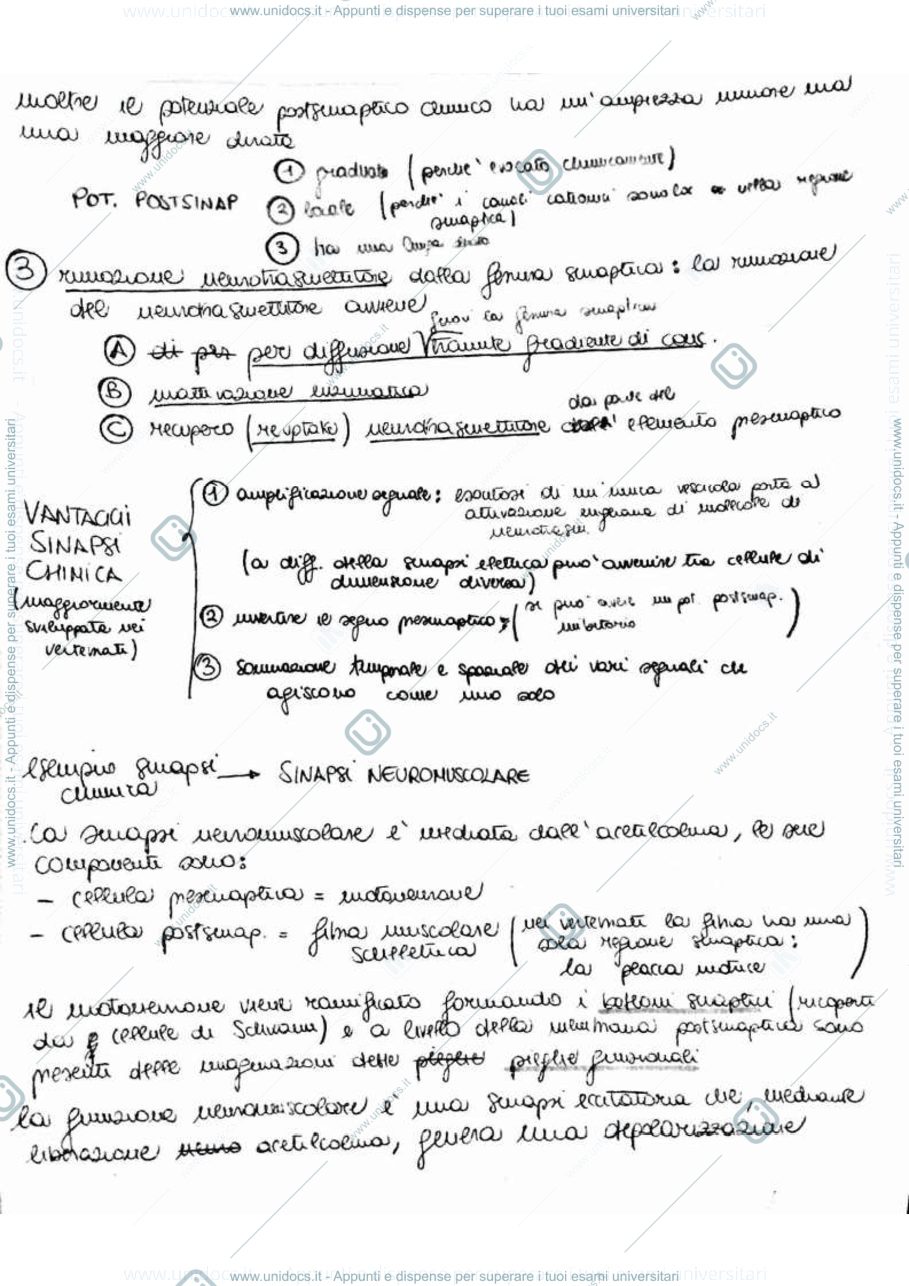 www.unidocs.it - Appunti e dispense per superare i tuoi esami universitari
inoltre il potenziale postsinaptico chimico ha un'ampiezza minore ma
una maggiore durata
POT. POSTSINAP
① graduato (perché evocato chimicamente)
② locale (perché i canali cationici sono lì nella regione
sinaptica)
③ ha una lunga
③ rimozione neurotrasmettitore dalla fessura sinaptica: la rimozione
del neurotrasmettitore avviene
fuori la fessura sinaptica
Ⓐ di per per diffusione tramite gradiente di conc.
Ⓑ inattivazione enzimatica
da parte del
Ⓒ recupero (reuptake) neurotrasmettitore elemento presinaptico
VANTAGGI
SINAPSI
CHIMICA
(maggiormente
sviluppata nei
vertebrati)
① amplificazione segnale: esocitosi di un'unica vescicola porta al
attivazione migliaia di molecole di
neurotrasm.
(a diff. della sinapsi elettrica può avvenire tra cellule di
dimensione diversa)
② invertire il segno presinaptico; (si può avere un pot. postsinap.
inibitorio)
③ sommazione temporale e spaziale dei vari segnali che
agiscono come uno solo
esempio sinapsi → SINAPSI NEUROMUSCOLARE
chimica
La sinapsi neuromuscolare è mediata dall'acetilcolina, le sue
componenti sono:
- cellula presinaptica = motoneurone
- cellula postsinap. = fibra muscolare (nei vertebrati la fibra ha una
scheletrica sola regione sinaptica:
la placca motrice)
il motoneurone viene ramificato formando i bottoni sinaptici (ricoperti
da cellule di Schwann) e a livello della membrana postsinaptica sono
presenti delle invaginazioni dette pieghe pieghe giunzionali
la giunzione neuromuscolare è una sinapsi eccitatoria che, mediante
liberazione acetilcolina, genera una depolarizzazione
www.unidocs.it - Appunti e dispense per superare i tuoi esami universitari